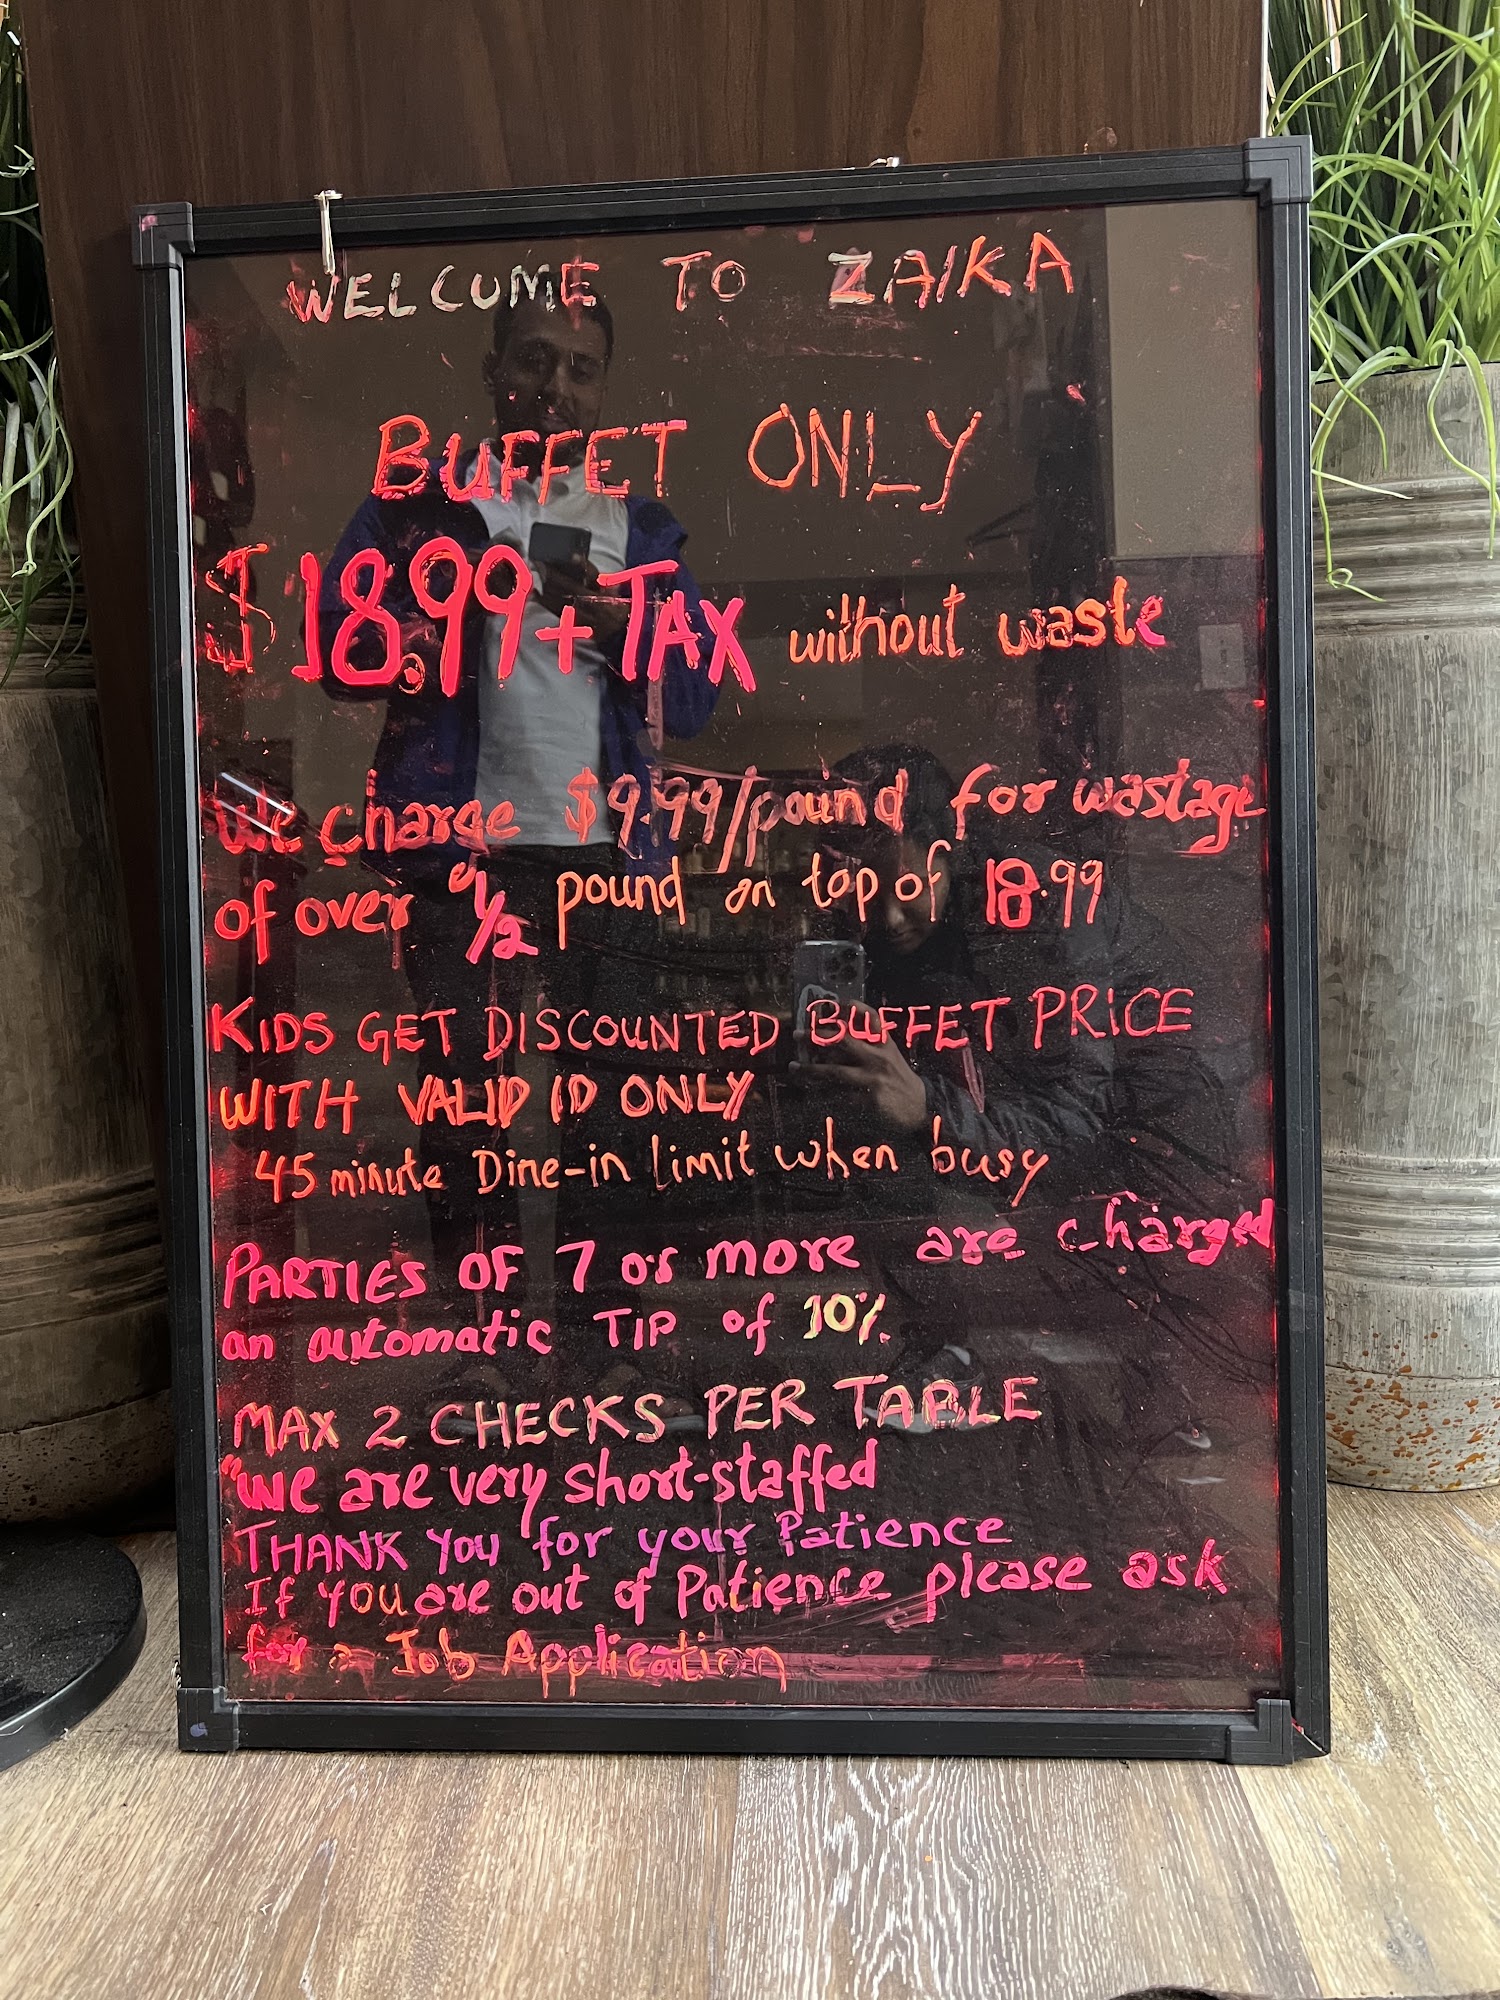 WELCUME TO ZAIKA
BUFFET ONLY
$18.99 + TAX without waste
We charge $9.99/pound for wastage
of over 1/2 pound on top of 18.99
KIDS GET DISCOUNTED BUFFET PRICE
WITH VALID ID ONLY
45 minute Dine-in limit when busy
PARTIES OF 7 or more are charged
an automatic TIP of 10%
MAX 2 CHECKS PER TABLE
"We are very short-staffed
THANK YOU for your Patience
If you are out of Patience please ask
for a Job Application